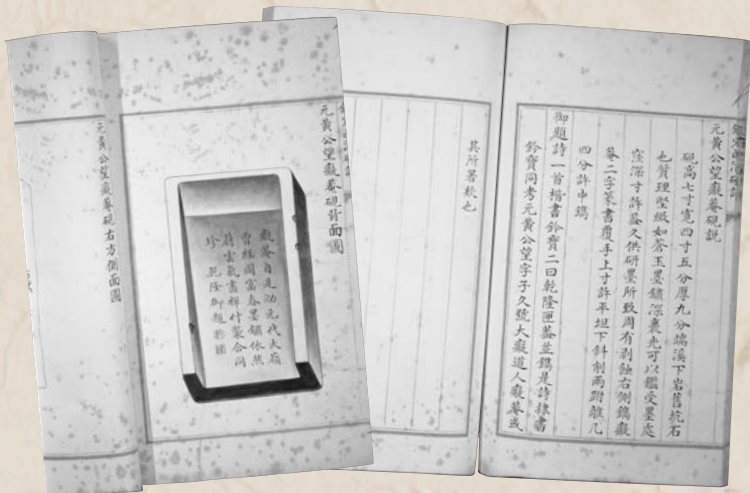 元黃公望癡菴硯說
硯高七寸寬四寸五分厚九分端溪下岩舊坑石
也質理堅緻如蒼玉墨鏽深裹光可以鑑受墨處
窪深寸許蓋久供研墨所致周有剥蝕右側鐫癡
菴二字篆書覆手上寸許平坦下斜削兩跗離几
四分許中鐫
御題詩一首楷書鈐寶二曰乾隆匣蓋並鐫是詩隸書
鈐寶同考元黃公望字子久號大癡道人癡菴或
其所署款也
元黃公望癡菴硯背面圖
癡菴自是泐元代大癡
曾經圖富春墨鏽依然
蔚雲氣畫禪什襲合同
珍 乾隆御題
元黃公望癡菴硯右方側面圖